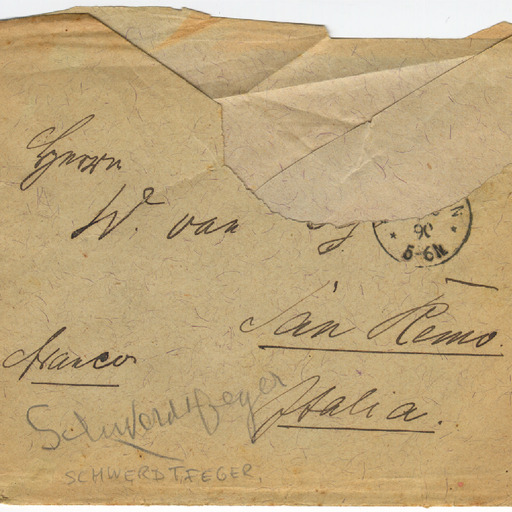 Herrn
W. van
90
5-6N.
San Remo.
franco
Italia.
Schwerdtfeger
SCHWERDTFEGER.